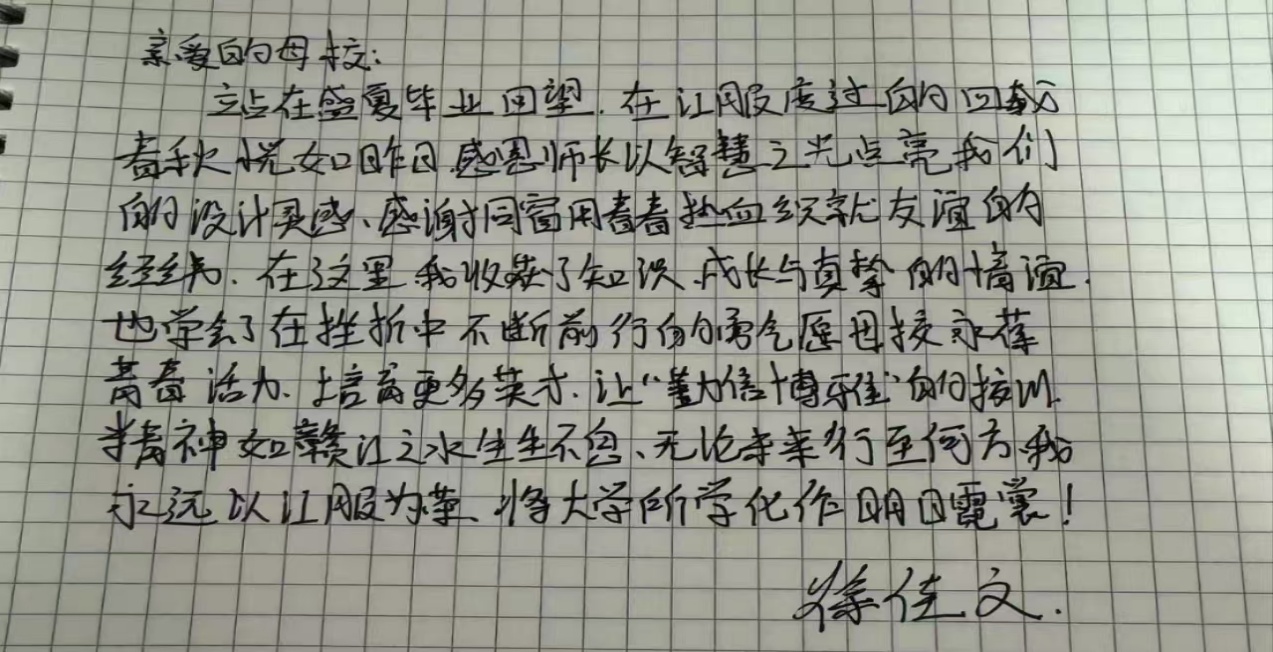 亲爱的母校:
站在盛夏毕业回望.在江服度过的四载
春秋恍如昨日.感恩师长以智慧之光点亮我们
的设计灵感、感谢同窗用青春热血织就友谊的
经纬.在这里我收获了知识.成长与真挚的情谊.
也学会了在挫折中不断前行的勇气愿母校永葆
青春活力.培育更多英才.让“勤信博雅”的校训
精神如赣江之水生生不息、无论未来行至何方.我
永远以江服为荣.将大学所学化作明日霓裳!
徐佳文.